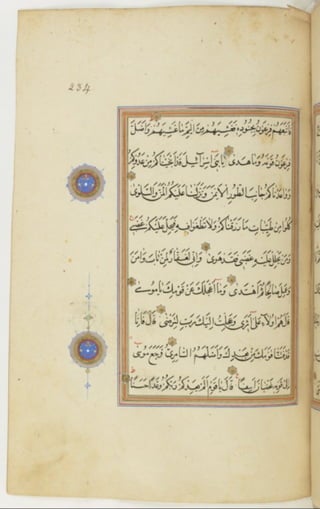 234
فَاَتْبَعَهُمْ فِرْعَوْنُ بِجُنُودِهِ فَغَشِيَهُمْ مِنَ الْيَمِّ مَا غَشِيَهُمْ وَاَضَلَّ
فِرْعَوْنُ قَوْمَهُ وَمَا هَدٰى يَا بَنِي اِسْرَآئِيلَ قَدْ اَنْجَيْنَاكُمْ مِنْ عَدُوِّكُمْ
وَوَاعَدْنَاكُمْ جَانِبَ الطُّورِ الْاَيْمَنَ وَنَزَّلْنَا عَلَيْكُمُ الْمَنَّ وَالسَّلْوٰى
كُلُوا مِنْ طَيِّبَاتِ مَا رَزَقْنَاكُمْ وَلَا تَطْغَوْا فِيهِ فَيَحِلَّ عَلَيْكُمْ غَضَبِي
وَمَنْ يَحْلِلْ عَلَيْهِ غَضَبِي فَقَدْ هَوٰى وَاِنِّي لَغَفَّارٌ لِمَنْ تَابَ وَاٰمَنَ
وَعَمِلَ صَالِحًا ثُمَّ اهْتَدٰى وَمَا اَعْجَلَكَ عَنْ قَوْمِكَ يَا مُوسٰى
قَالَ هُمْ اُولَاءِ عَلٰى اَثَرِي وَعَجِلْتُ اِلَيْكَ رَبِّ لِتَرْضٰى قَالَ فَاِنَّا
قَدْ فَتَنَّا قَوْمَكَ مِنْ بَعْدِكَ وَاَضَلَّهُمُ السَّامِرِيُّ فَرَجَعَ مُوسٰى
اِلٰى قَوْمِهِ غَضْبَانَ اَسِفًا قَالَ يَا قَوْمِ اَلَمْ يَعِدْكُمْ رَبُّكُمْ وَعْدًا حَسَنًا